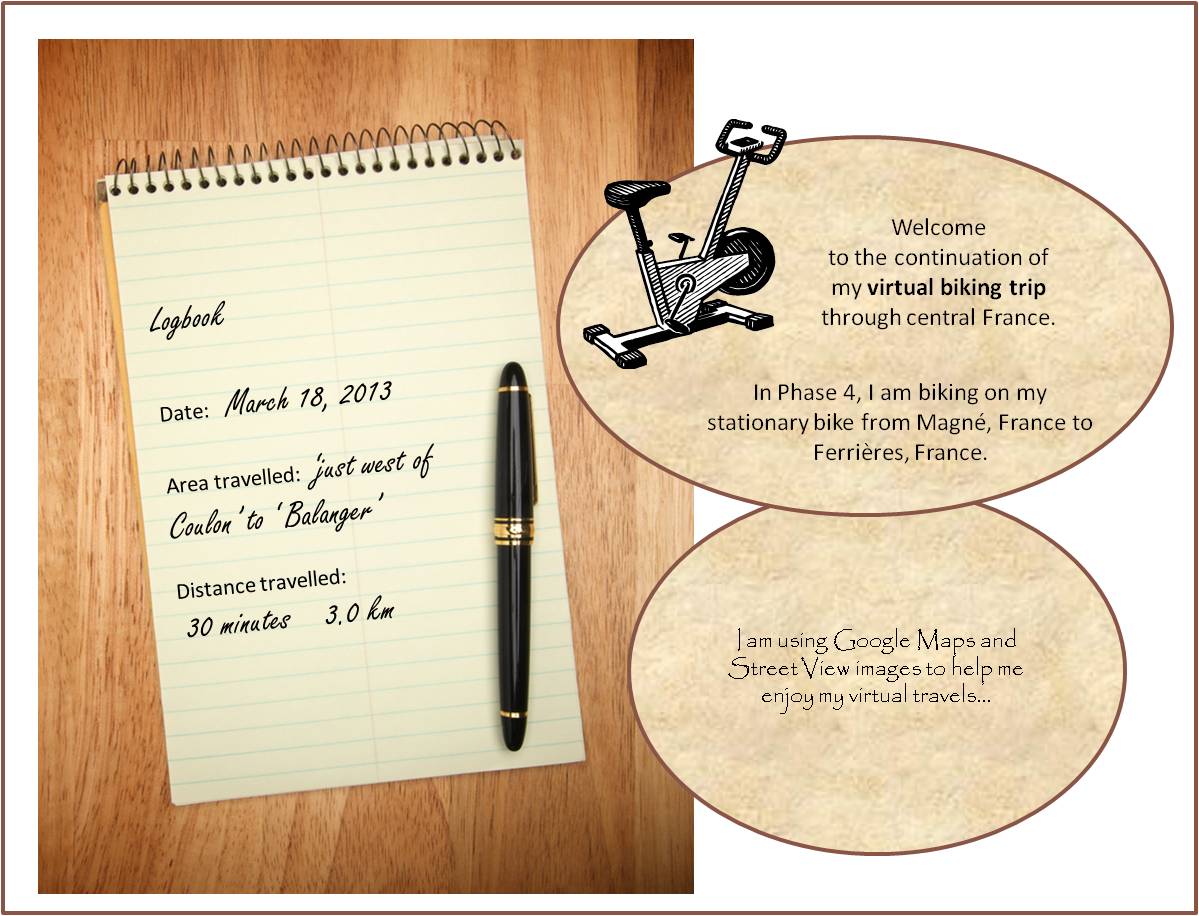 Logbook
Date: March 18, 2013
Area travelled: 'just west of
Coulon' to 'Balanger'
Distance travelled:
30 minutes 3.0 km
Welcome
to the continuation of
my virtual biking trip
through central France.
In Phase 4, I am biking on my
stationary bike from Magné, France to
Ferrières, France.
I am using Google Maps and
Street View images to help me
enjoy my virtual travels...